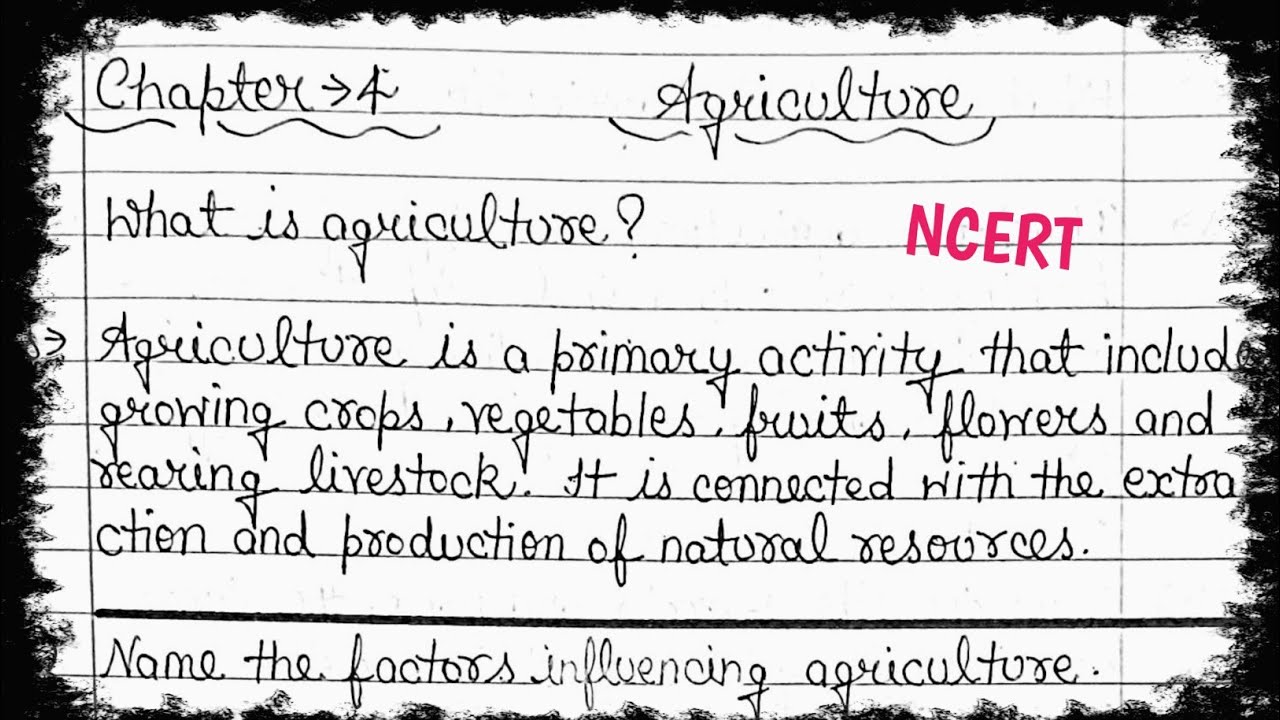 Chapter → 4 Agriculture
What is agriculture?
NCERT
→ Agriculture is a primary activity that include
growing crops, vegetables, fruits, flowers and
rearing livestock. It is connected with the extra
ction and production of natural resources.
Name the factors influencing agriculture.